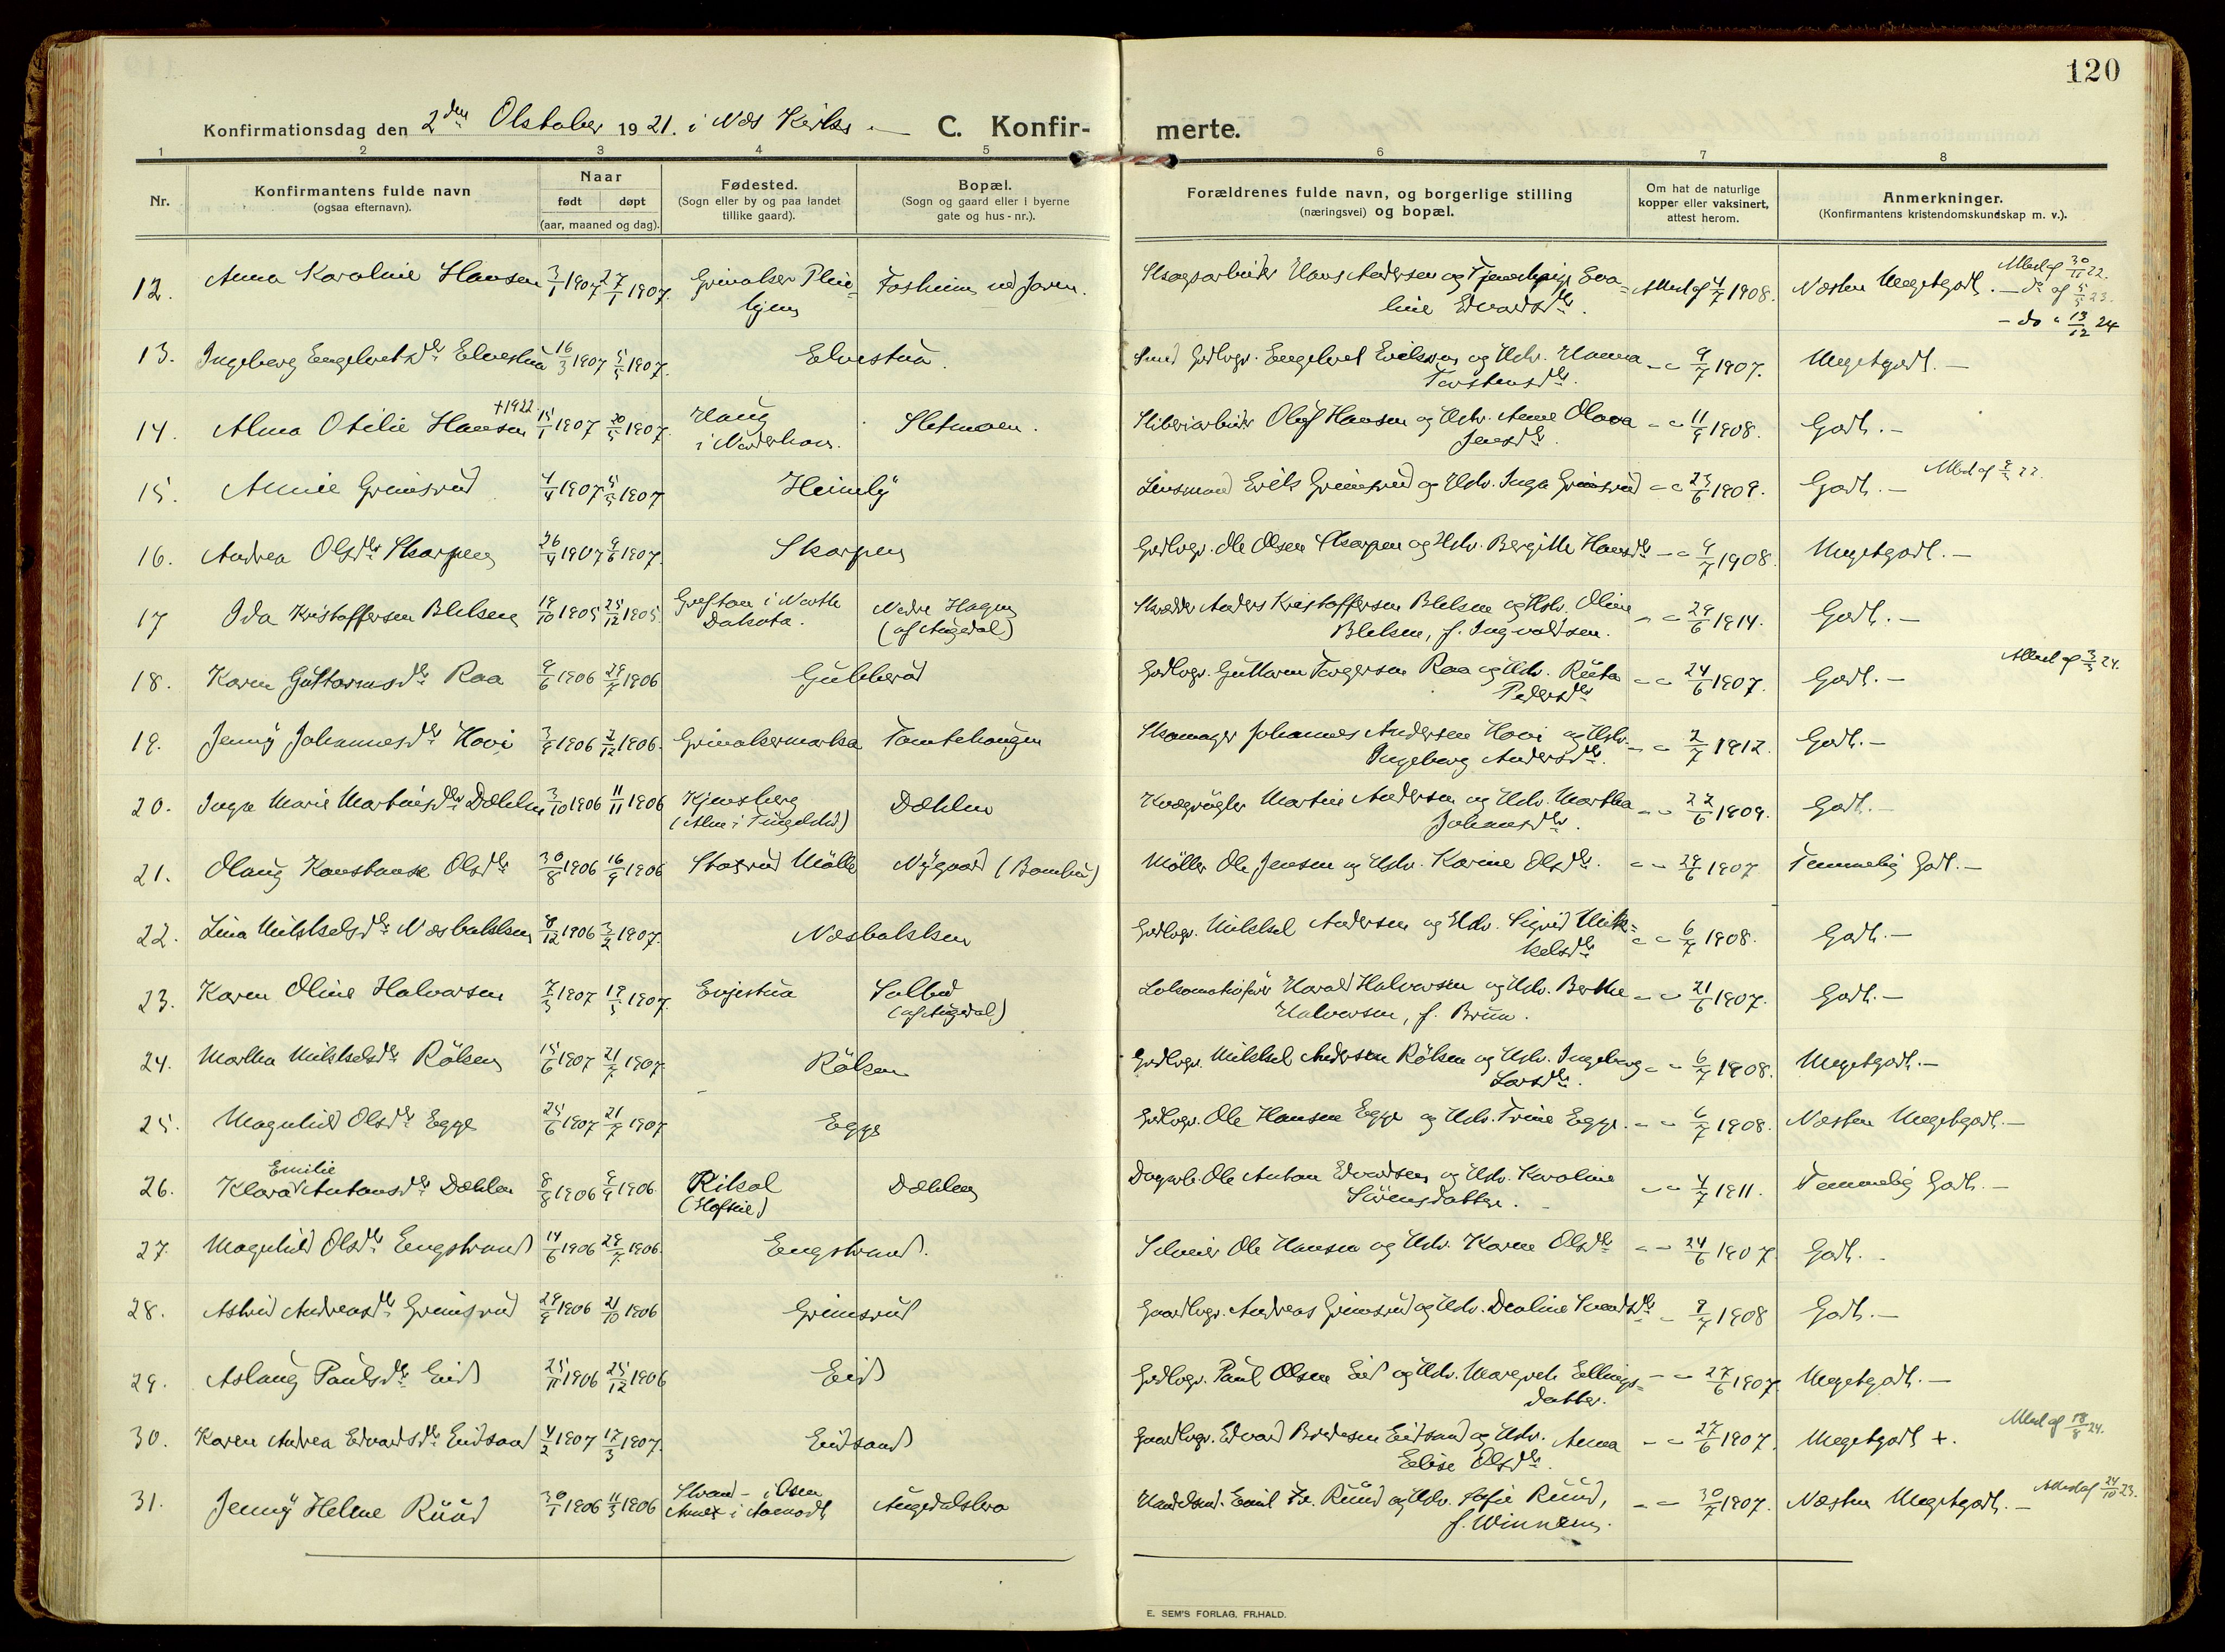 120
Konfirmationsdag den 2den Oktober 1921. i Næs Kirke. — C. Konfir- merte.
1 2 3 4 5 6 7 8
Nr.
Konfirmantens fulde navn
(ogsaa efternavn).
Naar
født døpt
(aar, maaned og dag).
Fødested.
(Sogn eller by og paa landet
tillike gaard).
Bopæl.
(Sogn og gaard eller i byerne
gate og hus-nr.).
Forældrenes fulde navn, og borgerlige stilling
(næringsvei) og bopæl.
Om hat de naturlige
kopper eller vaksinert,
attest herom.
Anmerkninger.
(Konfirmantens kristendomskundskap m. v.).
12. Anna Karoline Hansen 3/1 1907 27/1 1907. Fosheim ved Joren. Hans Andersen og Eva=
line Edvardsdtr. Attest af 4/7 1908. Næsten Megetgodt. — Attest af 30/11 22.
— do af 5/5 23.
— do " 13/12 24
13. Ingeborg Engebretsdtr Elvestua 16/3 1907 5/5 1907. Elvestua. Engebret Eriksen og Hstr. Hanna
Torstensdtr. — " 9/7 1907. Megetgodt. —
14. Alma Otilie Hansen +1922 15/1 1907 20/5 1907. Haug
i Norderhov. Sletmoen. Sliberiarbeider Olaf Hansen og Hstr. Anne Olava
Jensdtr. — " 11/9 1908. Godt. —
15. Annie Grimsrud 4/4 1907 5/5 1907. Heimly Lensmand Erik Grimsrud og Hstr. Inga Grimsrud — " 23/6 1909. Godt. —
16. Andrea Olsdtr Skarpen 26/4 1907 9/6 1907. Skarpen Gbrugr. Ole Olsen Skarpen og Hstr. Bergitte Hansdtr — " 9/7 1908. Megetgodt. —
17 Ida Kristoffersen Blilsen 19/10 1905 25/12 1905. Grafton i North
Dakota. Nedre Hagen
(af Augedal) Skrædder Anders Kristoffersen Blilsen og Hstr. Oline
Blilsen, f. Ingvaldsen. — " 29/6 1914. Godt. —
18. Karen Guttormsdtr Raa 9/6 1906 29/7 1906 Gulbbrud Gbrugr. Guttorm Torgersen Raa og Hstr. Ruta
Pedersdtr — " 24/6 1907. Godt. — Attest af 3/3 24.
19. Jenny Johannesdtr Hovi 3/9 1906 2/12 1906. Grinakermarka Tomtehaugen Skomager Johannes Andersen Hovi og Hstr.
Ingeborg Andersdtr. — " 2/7 1912. Godt. —
20. Inga Marie Martinsdtr Dæhlen 3/10 1906 11/11 1906 Kjensberg Dæhlen Kvægrøgter Martin Andersen og Hstr. Martha
Johansdtr. — " 22/6 1909. Godt. —
21. Olaug Konstanse Olsdtr 30/8 1906 16/9 1906 Stoxrud Mölle Nygaard Møller Ole Jensen og Hstr. Karine Olsdtr. — " 29/6 1907 Temmelig Godt. —
22. Lina Mikkelsdtr Næsbakken 8/12 1906 3/2 1907. Næsbakken Gbrugr. Mikkel Andersen og Hstr. Sigrid Mik=
kelsdtr — " 6/7 1908. Godt. —
23. Karen Oline Halvorsen 7/3 1907 19/5 1907. Evjestua Solbu
(af Augedal) Lokomotivfører Harald Halvorsen og Hstr. Berthe
Halvorsen, f. Bruun. — " 21/6 1907. Godt. —
24. Martha Mikkelsdtr Rölsen 15/6 1907 21/7 1907 Rölsen Gbrugr. Mikkel Andersen Rölsen og Hstr. Ingeborg
Larsdtr. — " 6/7 1908. Megetgodt. —
25. Magnhild Olsdtr Egge 25/6 1907 21/7 1907 Egge Gbrugr. Ole Hansen Egge og Hstr. Trine Egge. — " 6/7 1908. Næsten Megetgodt. —
26. Klara Emilie Antonsdtr Dæhlen 8/8 1906 9/9 1906. Dæhlen Dagarb. Ole Anton Edvardsen og Hstr. Karoline
Sörensdatter. — " 4/7 1911. Temmelig Godt. —
27. Magnhild Olsdtr Engstrand 14/6 1906 29/7 1906. Engstrand. Ole Hansen og Hstr. Karen Olsdtr — " 24/6 1907. Godt. —
28. Astrid Andreasdtr Grimsrud 29/9 1906 21/10 1906 Grimsrud Gaardbrgr. Andreas Grimsrud og Hstr. Deoline — 9/7 1908 Godt. —
29. Aslaug Paulsdtr Eid 25/11 1906 25/12 1906 Eid Gbrugr. Paul Olsen Eid og Hstr. Margrete Ellings=
datter. — " 27/6 1907. Megetgodt. —
30. Karen Andrea Edvardsdtr Eidsand 4/2 1907 17/3 1907. Eidsand Gaardbrgr. Edvard Bredesen Eidsand og Hstr. Anna
Elise Olsdtr. — " 27/6 1907. Megetgodt +. Attest af 18/8 24.
31. Jenny Helene Ruud 30/1 1906 11/3 1906 Strand — i Osen
Annex i Aamodt Augedalsbro Handelsmd. Emil Fr. Ruud og Hstr. Sofie Ruud,
f. Winnem. — " 30/7 1907. Næsten Megetgodt. — Attest af 24/10 23.
E. SEM'S FORLAG, FR.HALD.